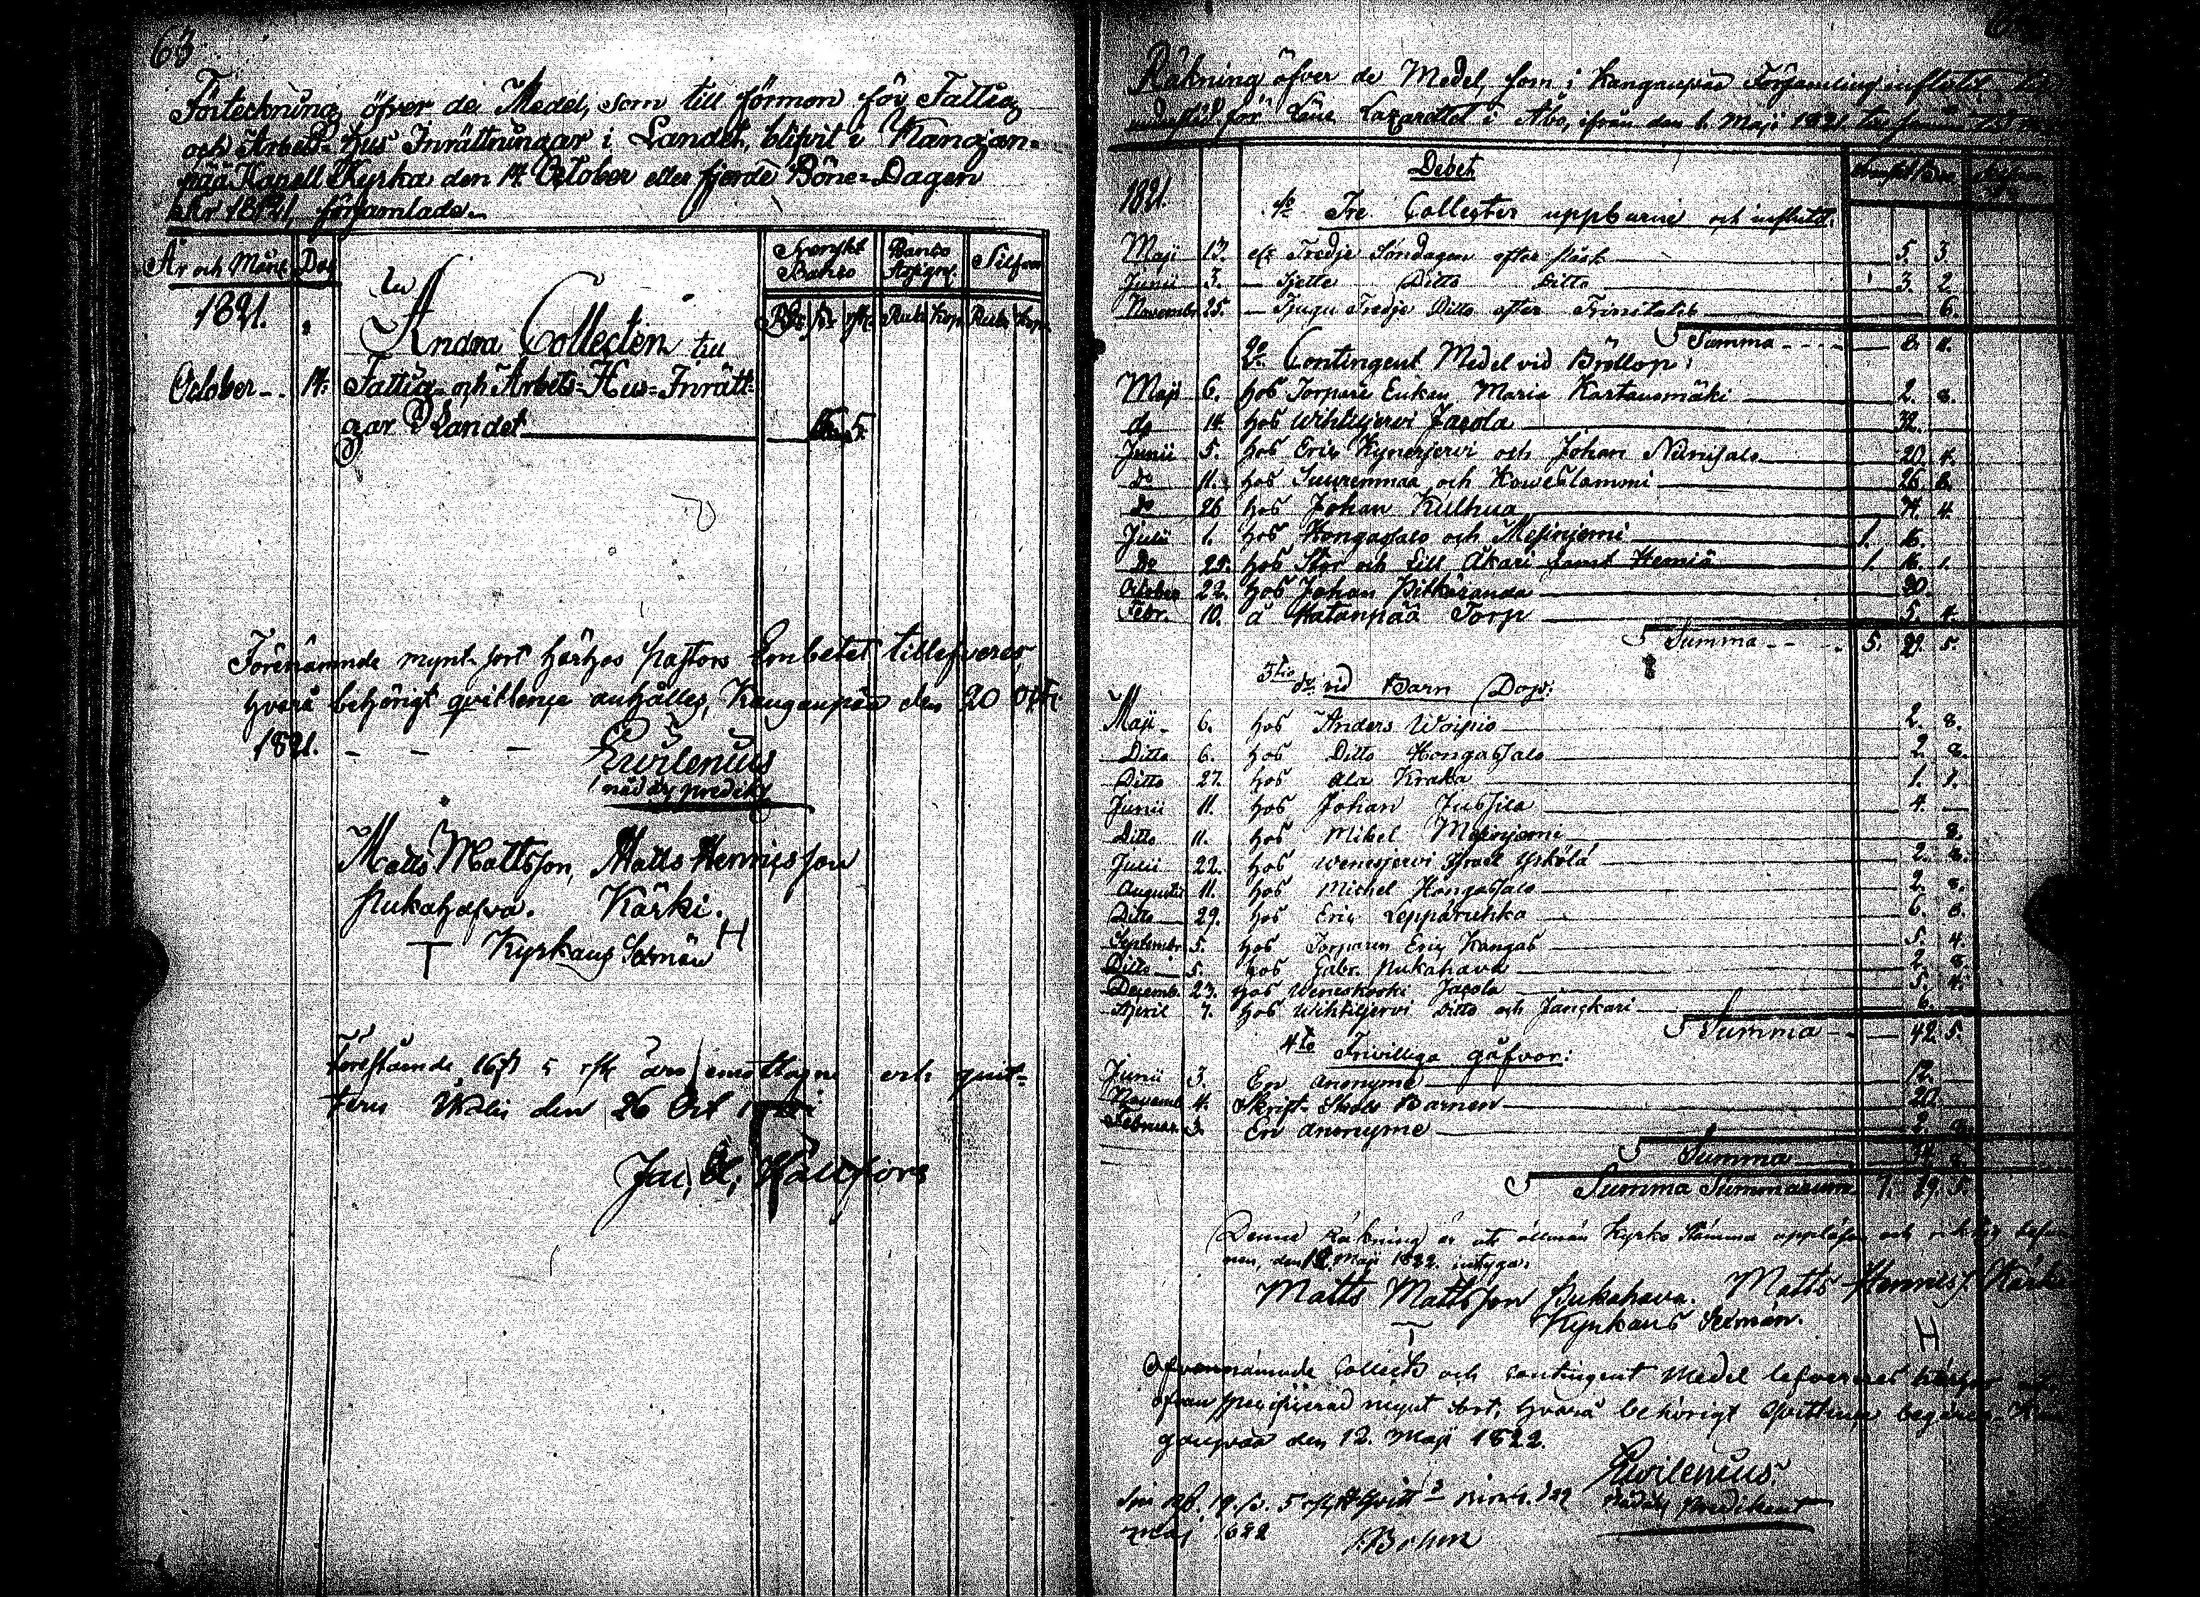 63
Förteckning öfver de Medel, som till förmon för Fattig
och Arbets-Hus Inrättningar i Landet, blifvit i Kangan-
pää Kapell Kyrka den 14 October eller fjerde Böne-Dagen
År 1821, församlade.
År och Mån. Dag Svenskt Banco Banco Assign. Silfver
1821. Rdr s rst. Rub. Kop. Rub. Kop.
Andra Collecten till
October 14. Fattig- och Arbets-Hus-Inrätt-
gar I Landet 16. 5.
Förenämnde mynt sort härhos Pastors Embetet tillefveres,
hvarå behörigt qvittence anhålles, Kanganpää den 20 Octr
1821.
predik
Matts Mattsson, Matts Henricsson
Pukahafva. Kärki.
T Kyrkans Sexmän H
Förestående 16 5 äro emottagne och quit-
teras den 26 Oct
Räkning öfver de Medel, som i Kanganpää Församling influtit
för Läns Lazarettet i Åbo, ifrån den 6 Maji 1821
Debet
1821. 1o Tre Collecter uppburne och influtit.
Maji 13. Tredje Söndagen efter Påsk 5. 3.
Junii 3. Sjette Ditto Ditto 3. 2.
Novembr 25. Tjugu Tredje Ditto efter Trinitatis 6.
Summa 8. 11.
2o Contingent Medel vid Bröllop:
Maji 6. hos Torpare Enkan Maria Kartausmäki 2. 8.
do 14. hos Wihtiljervi Jacola 32.
Junii 5. hos Eric Kynesjervi och Johan Niinisalo 20. 4.
do 11. hos Suuremmaa och Koweslammi 26. 8.
do 26 hos Johan Kulhua 4.
Julii 1. hos Hongassalo och Mesiniemi 1. 16.
Do 25. hos Stor och Lill Äkäri samt Hemiä 1. 16. 1.
October 22. hos Johan Pitkäranda 30.
Febr. 10. å Hatanpää Torp 5. 4.
Summa 5. 5.
3tio do vid Barn Dop:
Maji 6. hos Anders Woipio 2. 8.
Ditto 6. hos Ditto Hongassalo 2. 8.
Ditto 27. hos Ala Kraka 1. 1.
Junii 11. hos Johan Jussila 4.
Ditto 11. hos Mikel Mesiniemi 8.
Julii 22. hos Wenesjervi Israel Yskölä 2. 8.
Augusti 11. hos Michel Hongassalo 2. 8.
Ditto 29. hos Eric Leppäruhka 6. 8.
Septembr 5. hos Torparen Eric Kangas 5. 4.
Ditto 5. hos Gabr. Pukahava 2. 8.
Decemb. 23. hos Weneskoski Jacola 5. 4.
April 7. hos Wihtiljervi Ditto och Jänckäri 6.
Summa 42. 5.
4to Frivilliga gåfvor:
Junii 3. En anonyme 12.
Novemb 4. Skrift-Skole Barnen 20.
Februar. 3. En anonyme 2.
Summa
Summa Summarum 7. 19. 5.
Denne Räkning är uti allmän Kyrko Stämma uppläsen och riktig befun-
nen, den 12. Maji 1822. intygar
Matts Mattsson Pukahava. Matts Henricss. Kärki
Kyrkans Sexmän.
T H
Ofvannämnde Collects och Contingent Medel lefvereras härhos
ofvan specificerad mynt sort, hvarå behörigt Qvittence begäres
gånpää den 12. Maji 1822.
5 Qvitt
Maj 1822 Predikant
Bohm